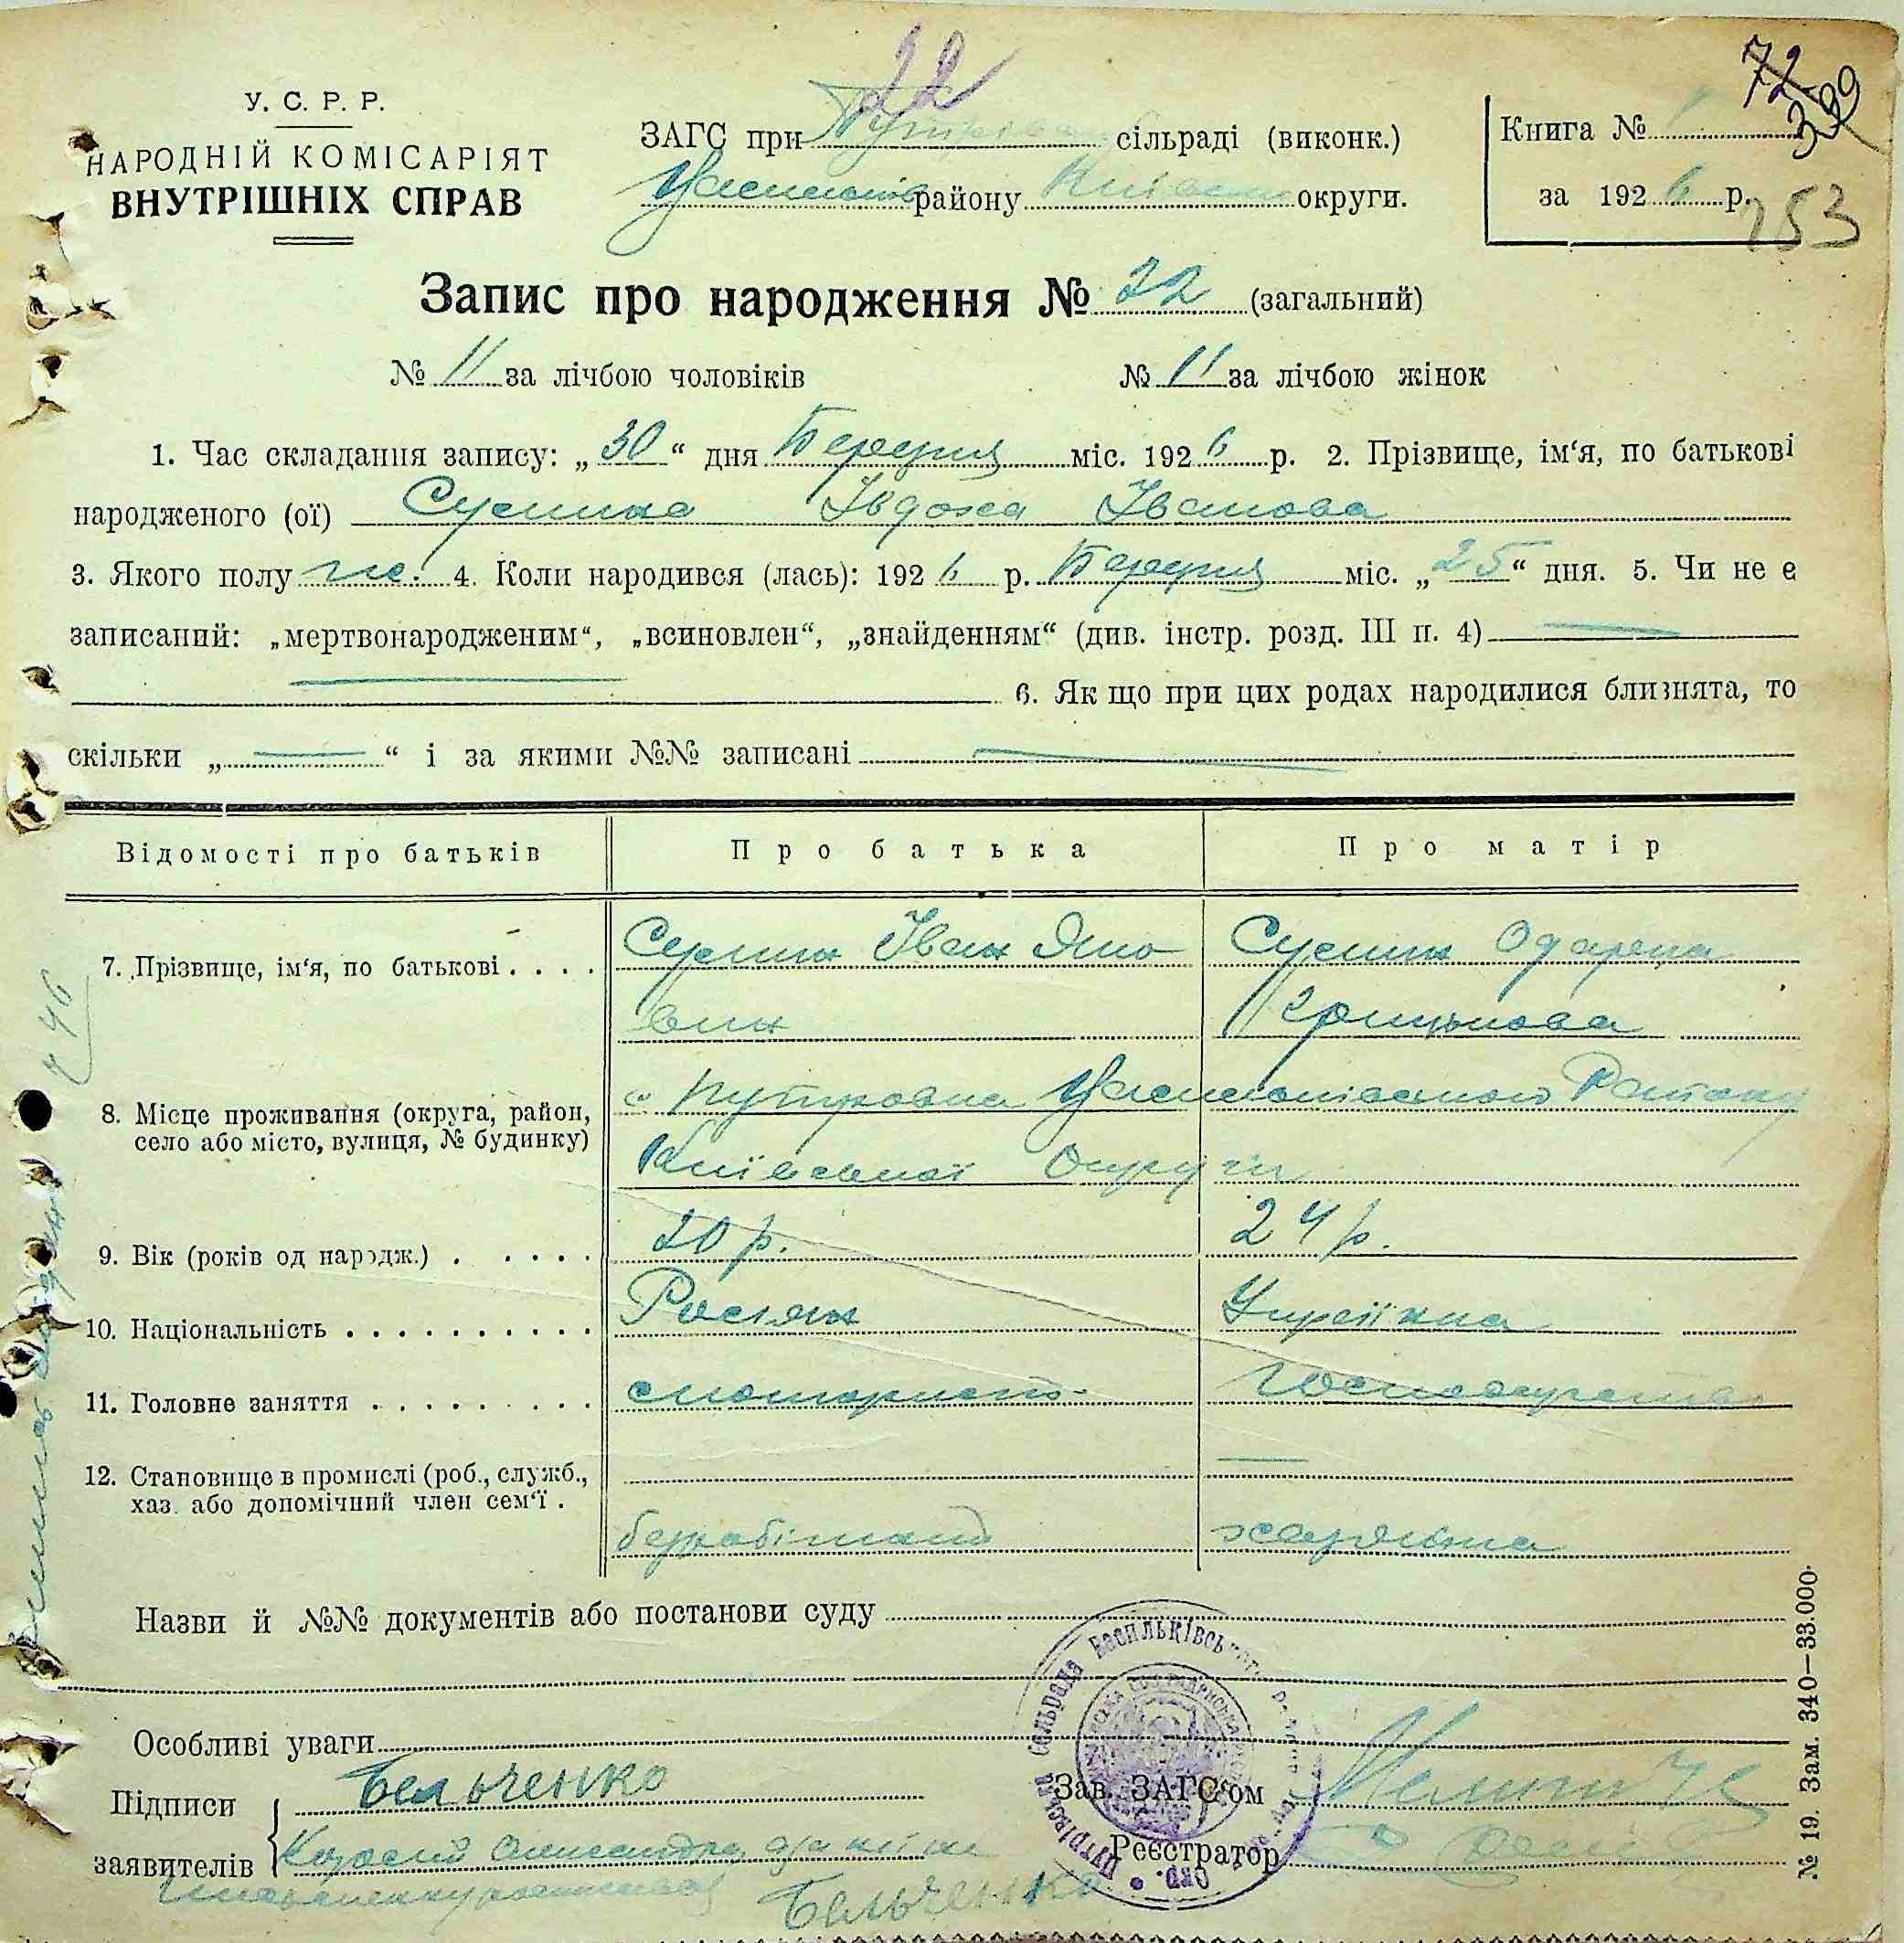 22
72
399
У. С. Р. Р.
НАРОДНІЙ КОМІСАРІЯТ
ВНУТРІШНІХ СПРАВ
ЗАГС при Путрівсь сільраді (виконк.)
району Київськ округи.
Книга № 1
за 1926 р.
153
Запис про народження № 22 (загальний)
№ 11 за лічбою чоловіків № 11 за лічбою жінок
1. Час складання запису: „30“ дня Березня міс. 1926 р. 2. Прізвище, ім‘я, по батькові
народженого (ої) Івдоха Іванова
3. Якого полу ж. 4. Коли народився (лась): 1926 р. Березня міс. „25“ дня. 5. Чи не є
записаний: „мертвонародженим“, „всиновлен“, „знайденням“ (див. інстр. розд. III п. 4)
6. Як що при цих родах народилися близнята, то
скільки „ “ і за якими №№ записані
Відомості про батьків Про батька Про матір
7. Прізвище, ім‘я, по батькові . . . . Іван Одарка
Грицькова
8. Місце проживання (округа, район,
село або місто, вулиця, № будинку)
с Путровка Району
Київської Округи
9. Вік (років од народж.) . . . . . 20 р. 24 р.
10. Національність . . . . . . . . . . Росіян Українка
11. Головне заняття . . . . . . . . .
12. Становище в промислі (роб., служб.,
хаз. або допомічний член сем‘ї .
безробітний хазяйка
Назви й №№ документів або постанови суду
Особливі уваги
Підписи
заявителів
Бельченко
Бельченко
Зав. ЗАГС‘ом
Реєстратор
Путрівська сільрада Васильківськ
№ 19. Зам. 340—33.000.